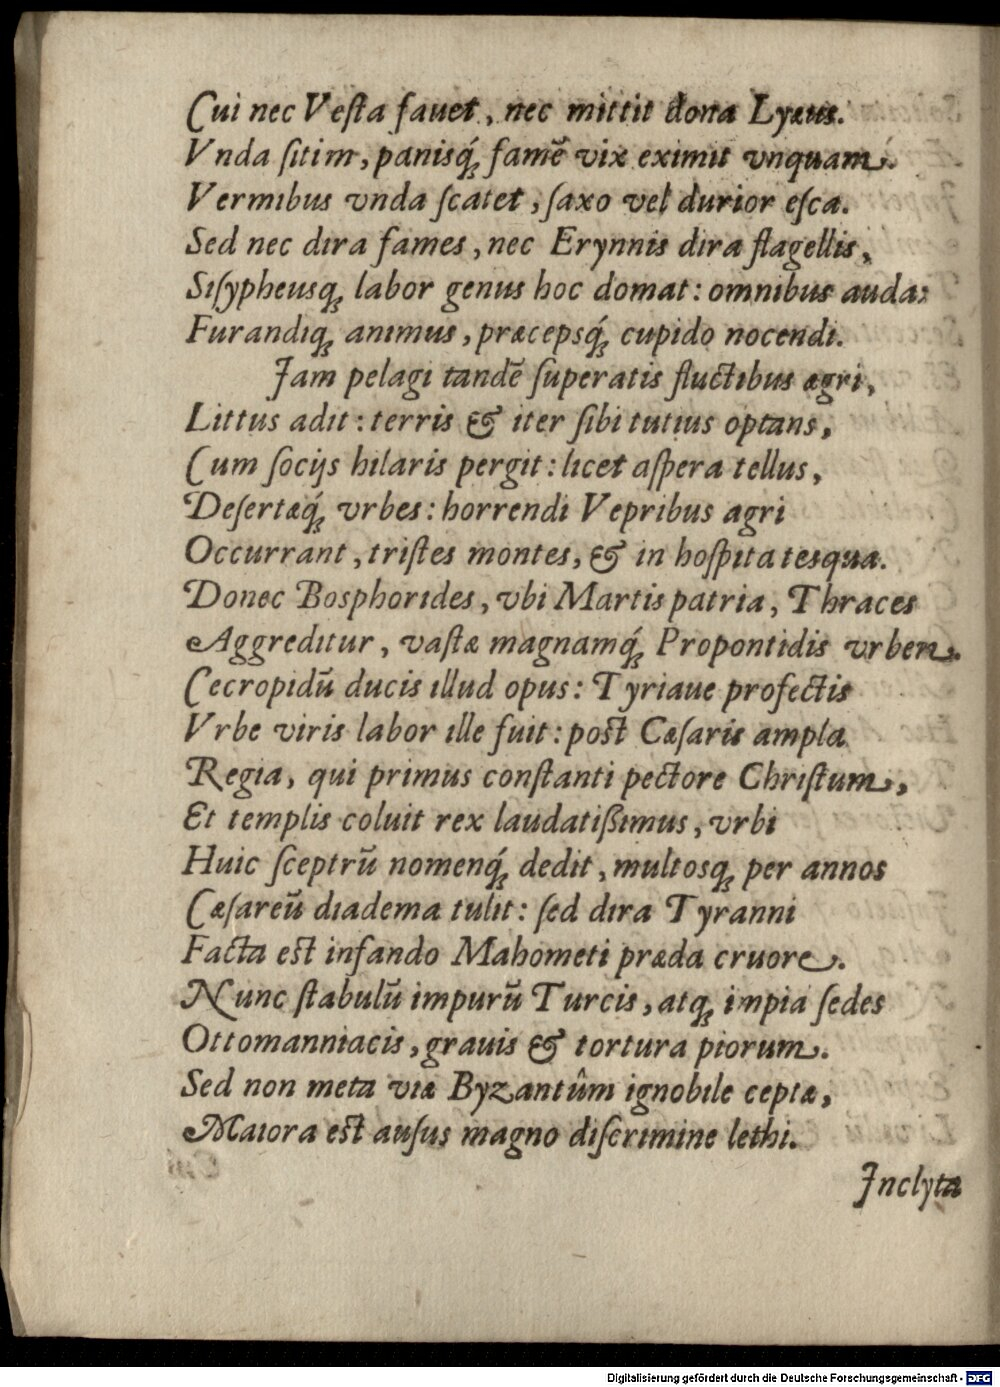 Cui nec Veſta fauet, nec mittit dona Lyæus.
Vnda ſitim, panisq́; famē vix eximit vnquam.
Vermibus vnda ſcatet, ſaxo vel durior eſca.
Sed nec dira fames, nec Erynnis dira flagellis,
Siſypheusq; labor genus hoc domat: omnibus auda:
Furandiq; animus, præcepsq́; cupido nocendi.
Jam pelagi tandē ſuperatis fluctibus ægri,
Littus adit: terris & iter ſibi tutius optans,
Cum ſocijs hilaris pergit: licet aſpera tellus,
Deſertæq́; vrbes: horrendi Vepribus agri
Occurrant, triſtes montes, & in hoſpita tesqua.
Donec Bosphorides, vbi Martis patria, Thraces
Aggreditur, vaſtæ magnamq́; Propontidis vrben.
Cecropidū ducis illud opus: Tyriaue profectis
Vrbe viris labor ille fuit: poſt Cæſaris ampla
Regia, qui primus conſtanti pectore Chriſtum,
Et templis coluit rex laudatißimus, vrbi
Huic ſceptrū nomenq́; dedit, multosq; per annos
Cæſareū diadema tulit: ſed dira Tyranni
Facta eſt infando Mahometi præda cruore.
Nunc ſtabulū impurū Turcis, atq; impia ſedes
Ottomanniacis, grauis & tortura piorum.
Sed non meta viæ Byzantûm ignobile ceptæ,
Maiora eſt auſus magno diſcrimine lethi.
Jnclyta
Digitalisierung gefördert durch die Deutsche Forschungsgemeinschaft - DFG